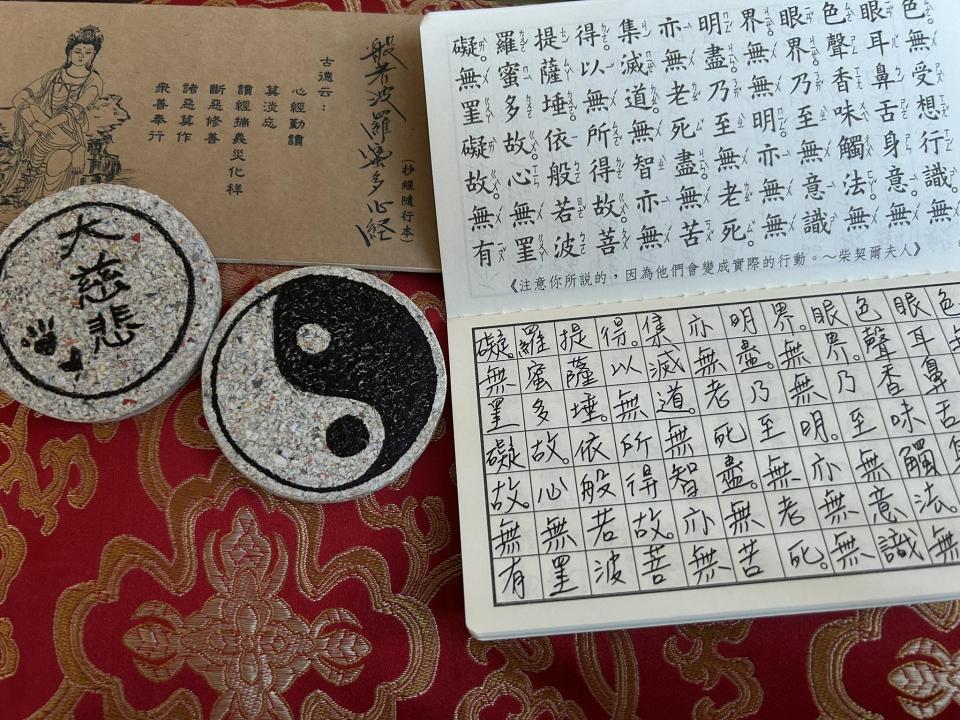 般若波羅蜜多心経
(抄經隨行本)
古德云：
心經勤讀
莫淡忘
讀經揣義災化祥
斷惡修善
諸惡莫作
眾善奉行
大
慈
悲
色。無受想行識。無
眼耳鼻舌身意。無
色聲香味觸法。無
眼界。乃至無意識
界。無無明。亦無無
明盡。乃至無老死。
亦無老死盡。無苦
集滅道。無智亦無
得。以無所得故。菩
提薩埵。依般若波
羅蜜多故。心無罣
礙。無罣礙故。無有
《注意你所說的，因為他們會變成實際的行動。～柴契爾夫人》
色
眼耳鼻舌
色聲香味觸法。無
眼界。乃至無意識
界。無無明。亦無無
明盡。乃至無老死。
亦無老死盡。無苦
集滅道。無智亦無
得。以無所得故。菩
提薩埵。依般若波
羅蜜多故。心無罣
礙。無罣礙故。無有